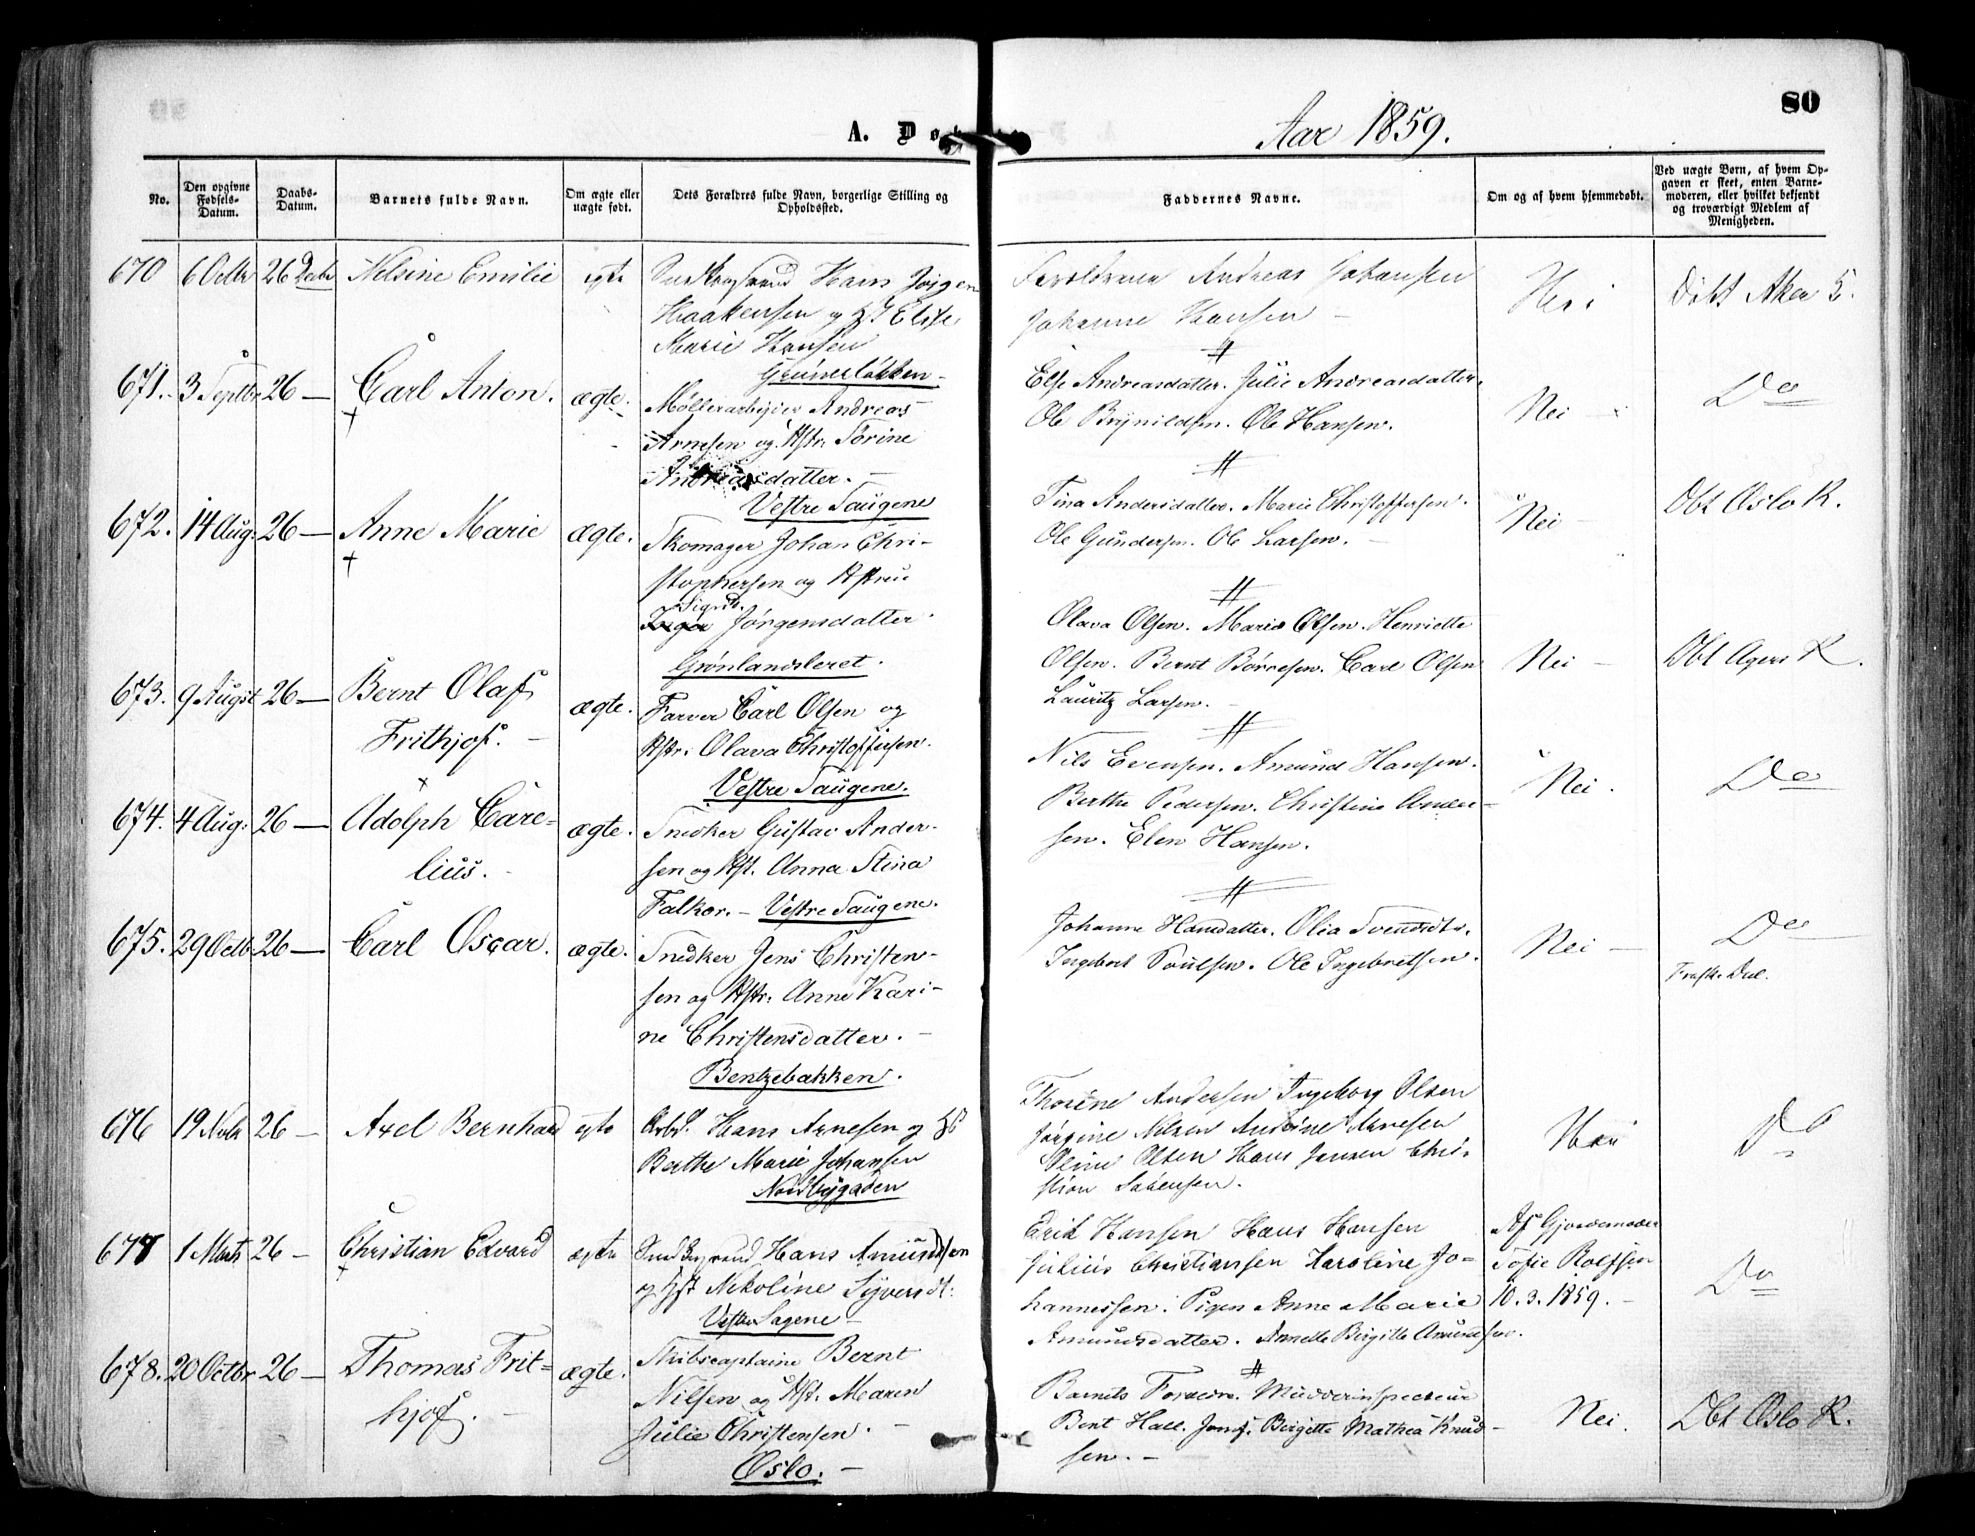 80
A. Døbte
Aar 1859.
No.
Den opgivne Fødsels-Datum.
Daabs-Datum.
Barnets fulde Navn.
Om ægte eller uægte født.
Dets Forældres fulde Navn, borgerlige Stilling og Opholdssted.
Faddernes Navne.
Om og af hvem hjemmedøbt.
Ved uægte Børn, af hvem Opgaven er skeet, enten Barnemoderen, eller hvilket bekjendt og troværdigt Medlem af Menigheden.
670 6 Octbr 26 Decbr Nelsine Emilie egte
Hans Jørgen
Haakensen og H Elise
Marie Hansen
Grünerløkken
Forældrene Andreas Johansen
Johanne Hansen
Nei
Døbt Aker K.
671. 3 Septbr 26 — Carl Anton. ægte.
Møllerarbejder Andreas
Arnesen og Hstr. Sørine
Andreasdatter. —
Vestre Saugene
Else Andreasdatter. Julie Andreasdatter.
Ole Brynildsen. Ole Hansen.
Nei —
Do
672. 14 Aug: 26 — Anne Marie ægte.
Skomager Johan Chri-
stophersen og Hstrue
Sigrid.
Jørgensdatter.
Grønlandsleret.
Tina Andersdatter. Marie Christoffersen.
Ole Gundersen. Ole Larsen.
Nei —
Dbt Oslo K.
673. 9 Augst 26 — Bernt Olaf
Frithjof. —
ægte.
Farver Carl Olsen og
Hstr. Olava Christoffersen.
Vestre Saugene.
Olava Olsen. Marie Olsen. Henriette
Olsen. Bernt Børresen. Carl Olsen
Lauritz Larsen. —
Nei —
Dbt Agers K.
674. 4 Aug: 26 — Adolph Care-
lius.
ægte.
Snedker Gustav Ander-
sen og Hst. Anna Stina
Falkor. — Vestre Saugene.
Nils Evensen. Amund Hansen.
Berthe Pedersen. Christine Ander-
sen. Elen Hansen.
Nei.
Do
675. 29 Octb. 26 — Carl Oscar. ægte.
Snedker Jens Christen-
sen og Hstr. Anne Kari-
ne Christensdatter. —
Bentzebakken.
Johanne Hansdatter. Olia Svendsdtr.
Ingebor Poulsen. Ole Ingebretsen.
Nei —
Do
676 19 Novbr 26 — Axel Bernhard egte
Arbd. Hans Arnesen og H
Berthe Marie Johansen
Nordbygaden
Thorine Andersen Ingeborg Olsen
Jørgine Nilsen Andrine Arnesen
Oline Olsen Hans Jensen Chri-
stian Sørensen.
Nei
Do
677 1 Marts 26 — Christian Edvard ægte
Hans Amundsen
og Hst Nikoline Syversdt:
Vestre Sagene
Erik Hansen Hans Hansen
Julius Christiansen Karoline Jo-
hannessen. Pigen Anne Marie
Amundsdatter. Annette Birgitte Amundsen.
Af Gjordemoder
Sofie Rolfsen
10.3.1859. —
Do
678. 20 Octbr 26 — Thomas Frit-
hjof. —
ægte.
Skibscaptaine Bernt
Nilsen og Hst. Maren
Julie Christensen. —
Oslo. —
Barnets Forældre. Mudderinspecteur
Bent Hall. Jomf. Birgitte Mathea Knud-
sen. —
Nei.
Dbt Oslo K.